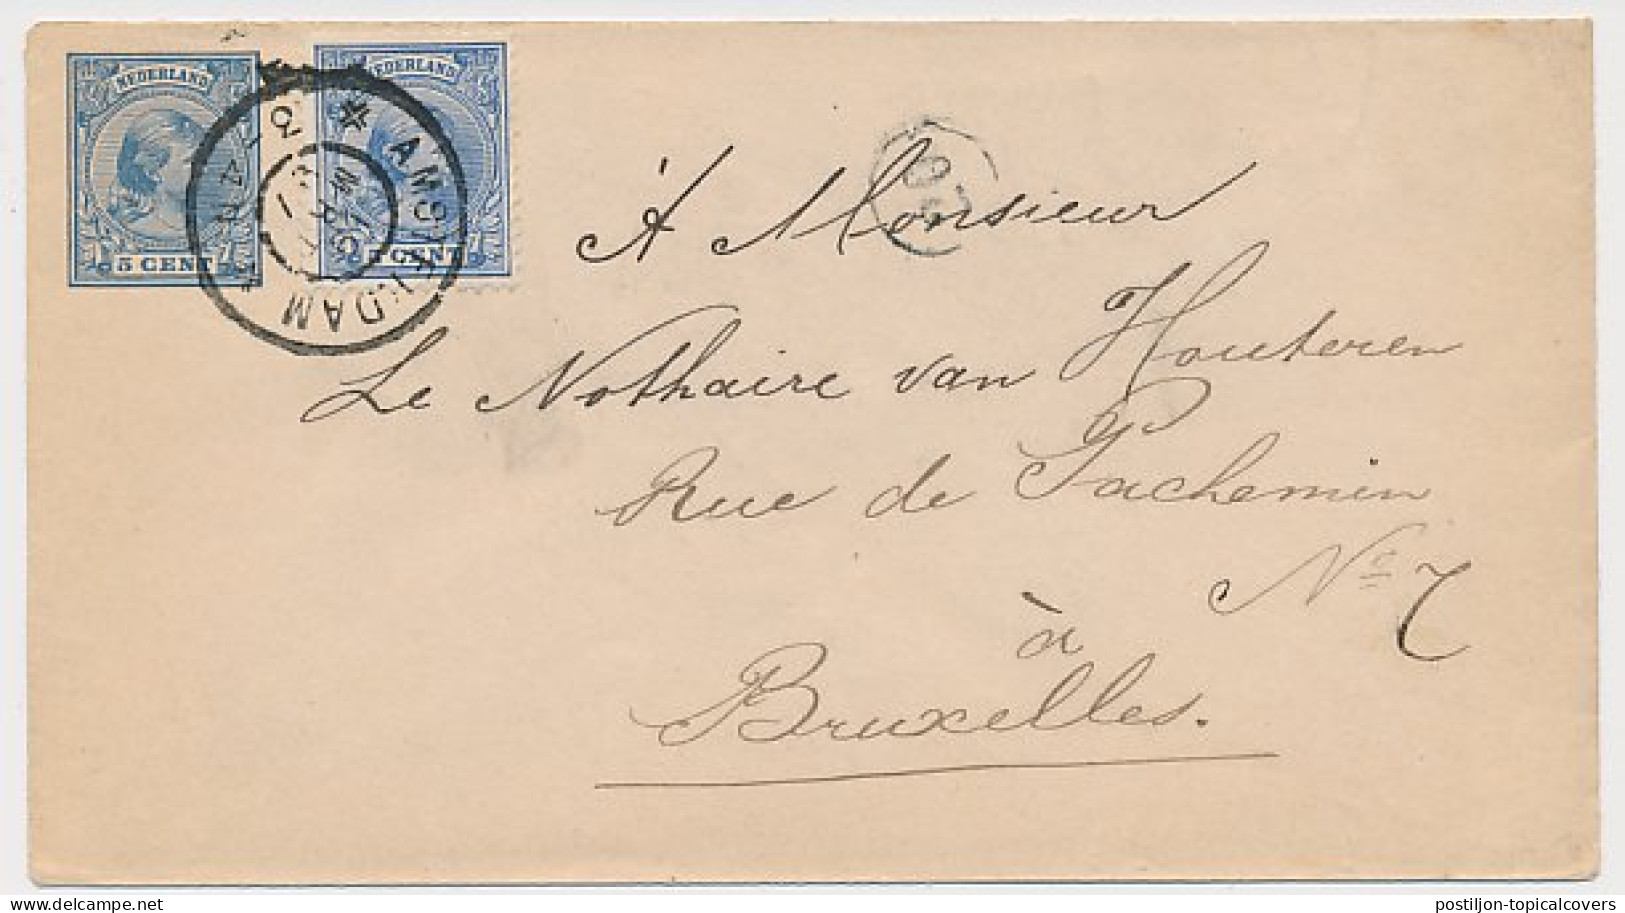 NEDERLAND
5 CENT
NEDERLAND
5 CENT
AMSTERDAM
À Monsieur
Le Nothaire van Houteren
Rue de Pachemin
No 7
à
Bruxelles.
postiljon-topicalcovers